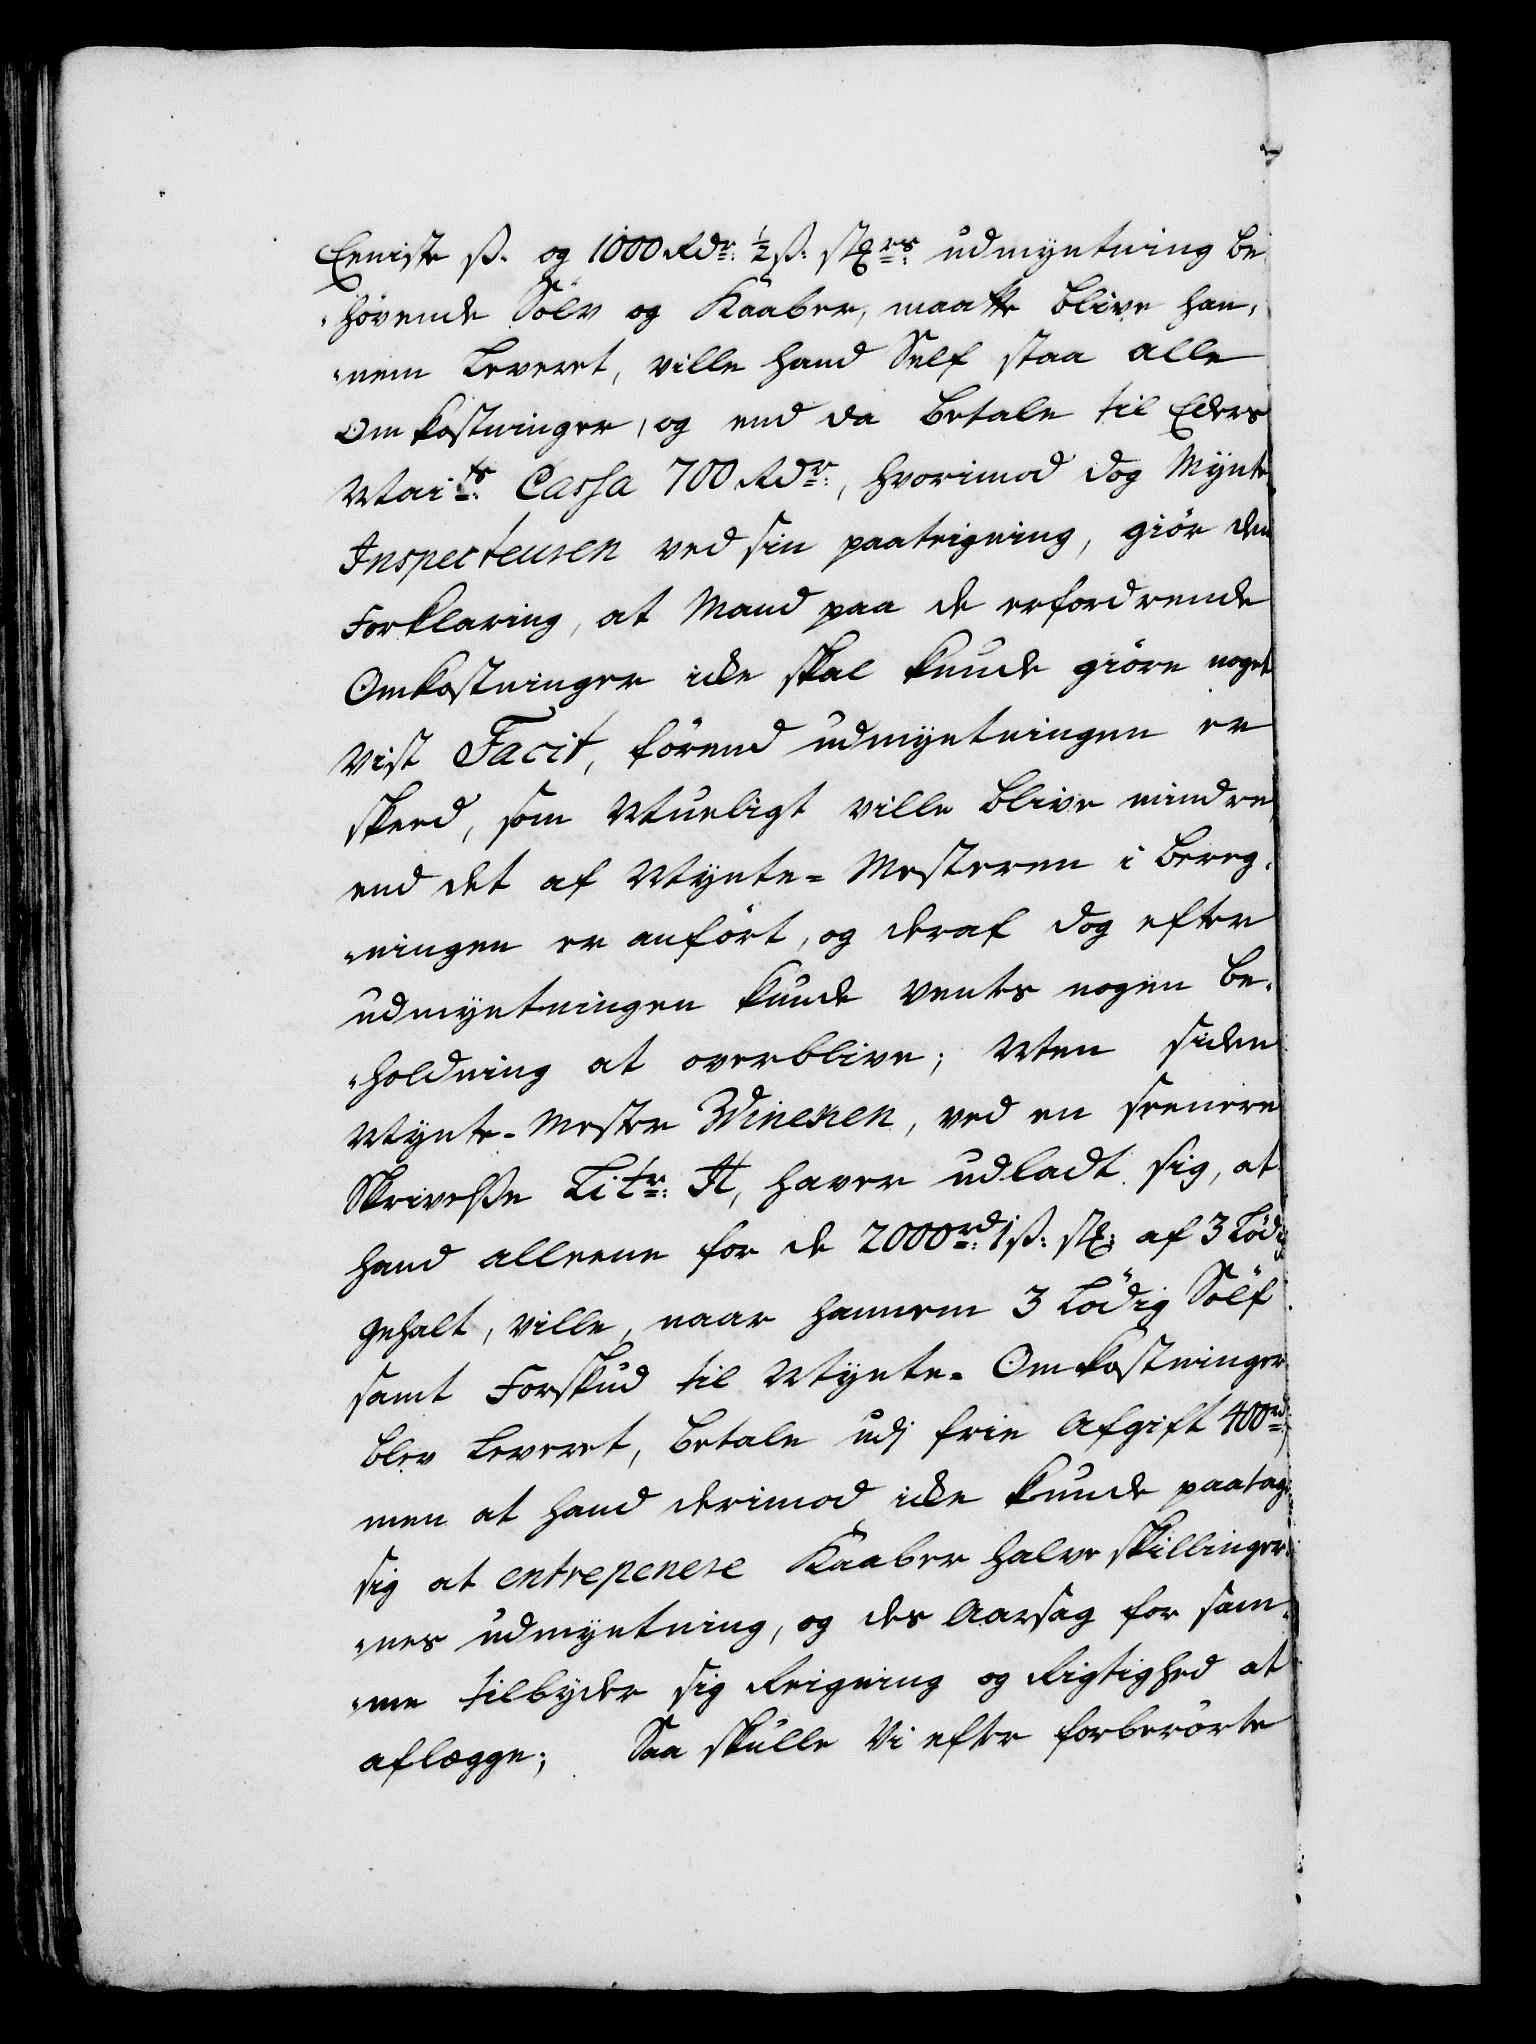 Eeniste ß. og 1000 Rdr: ½ ß: stkrs: udmyntning be
„hövende Sölv og Kaaber, maatte blive han„
„nem Leveret, ville hand Self staa alle
Omkostninger, og end da betale til Eders
Maits: Cassa 700 Rdr:, hvorimod dog Mynte
Inspecteuren ved sin paateigning, giör den
Forklaring, at Mand paa de erfordrende
Omkostninger icke skal kunde giöre noget
vist Facit, förend udmyntningen er
skeed, som Mueligt ville blive mindre,
end det af Mynte-Mesteren i bereg„
„ningen er anfört, og deraf dog efter
udmyntningen kunde ventes nogen be„
„holdning at overblive; Men siden
Mynte-Mester Wineken, ved en seenere
Skrivelse Litr: A, haver udladt sig, at
hand alleene for de 2000rd: 1 ß: stk: af 3 Lödig
gehalt, ville, naar hannem 3 Lödig Sölf
samt Forskud til Mynte-Omkostninger
blev Leveret, betale udj frie Afgift 400rd:
men at hand derimod icke kunde paatage
sig at entrepenere Kaaber halve skillinger„
„nes udmyntning, og des Aarsag for sam„
„me tilbyder sig Reigning og Rigtighed at
aflægge; Saa skulle Vi efter forberörte